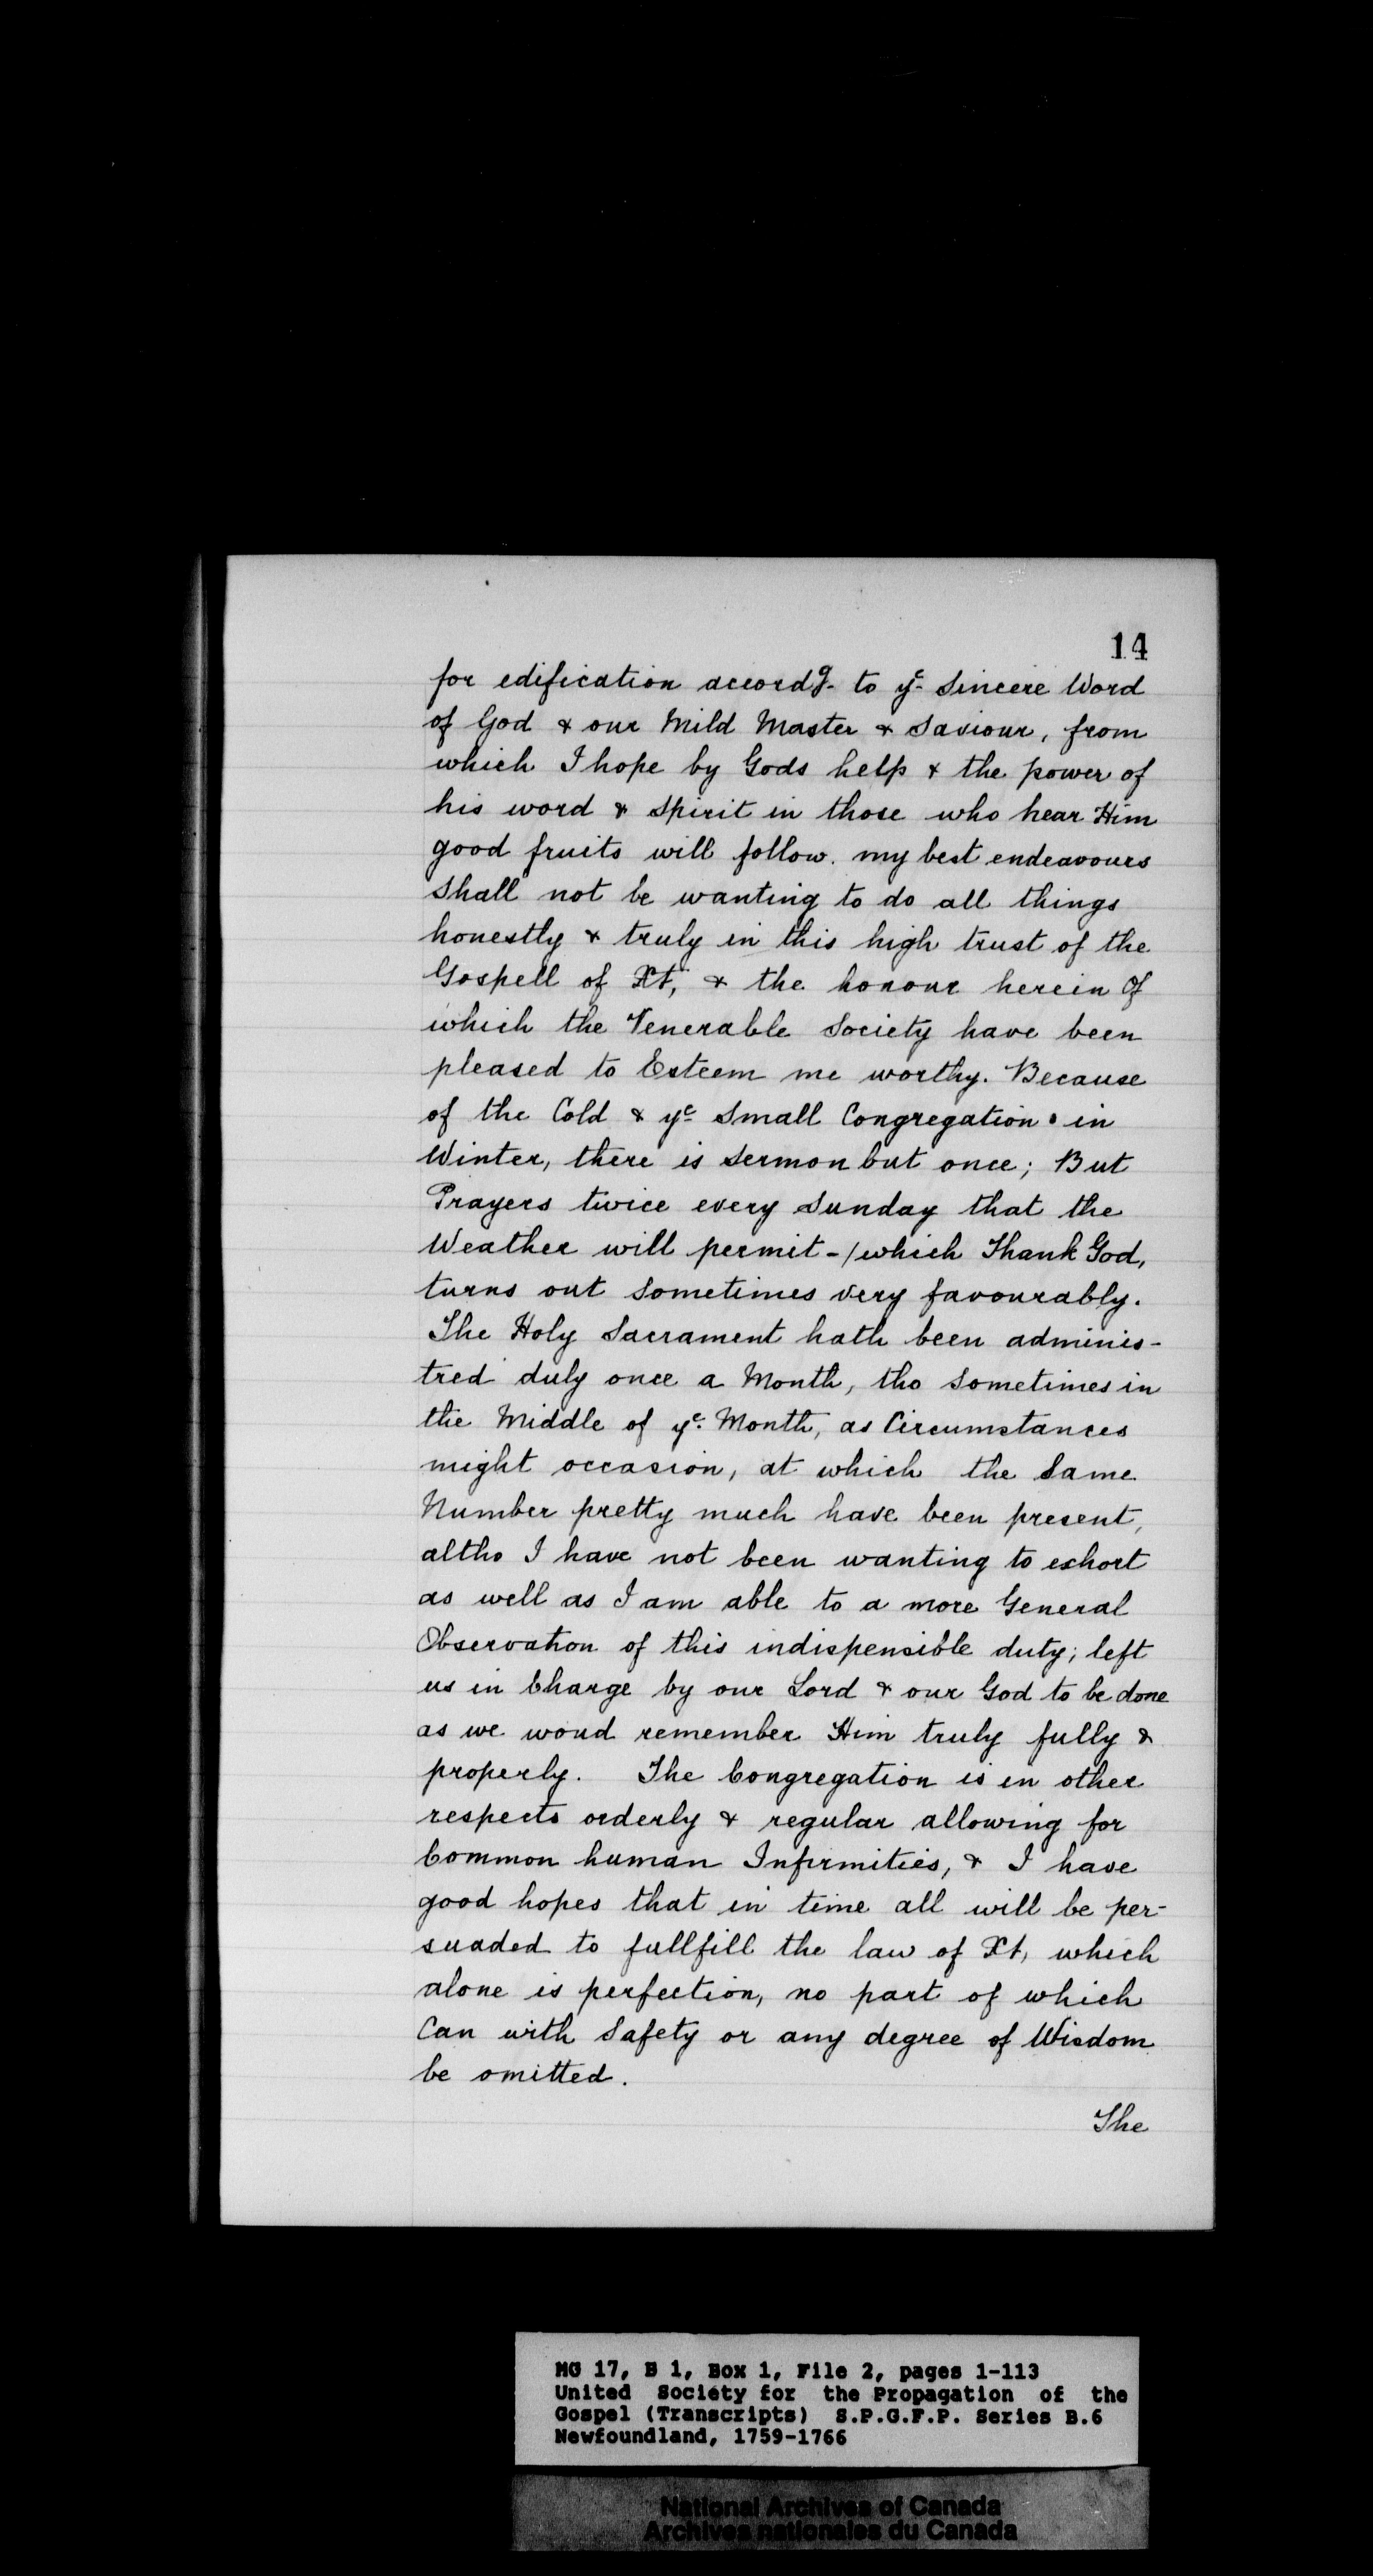 14
for edification accordg. to ye. Sincere Word
of God & our Mild Master & Saviour, from
which I hope by Gods help & the power of
his word & Spirit in those who hear Him
good fruits will follow. my best endeavours
shall not be wanting to do all things
honestly & truly in this high trust of the
Gospell of Xt, & the honour herein Of
which the Venerable Society have been
pleased to Esteem me worthy. Because
of the Cold & ye Small Congregation in
Winter, there is Sermon but once; But
Prayers twice every Sunday that the
Weather will permit-/which Thank God,
turns out Sometimes very favourably.
The Holy Sacrament hath been adminis-
tred duly once a Month, tho Sometimes in
the Middle of ye. Month, as Circumstances
might occasion, at which the Same
Number pretty much have been present,
altho I have not been wanting to exhort
as well as I am able to a more General
Observation of this indispensible duty; left
us in Charge by our Lord & our God to be done
as we woud remember Him truly fully &
properly. The Congregation is in other
respects orderly & regular allowing for
Common human Infirmities, & I have
good hopes that in time all will be per-
suaded to fullfill the law of Xt, which
alone is perfection, no part of which
Can with Safety or any degree of Wisdom
be omitted.
The
MG 17, B 1, Box 1, File 2, pages 1-113
United Society for the Propagation of the
Gospel (Transcripts) S.P.G.F.P. Series B.6
Newfoundland, 1759-1766
National Archives of Canada
Archives nationales du Canada